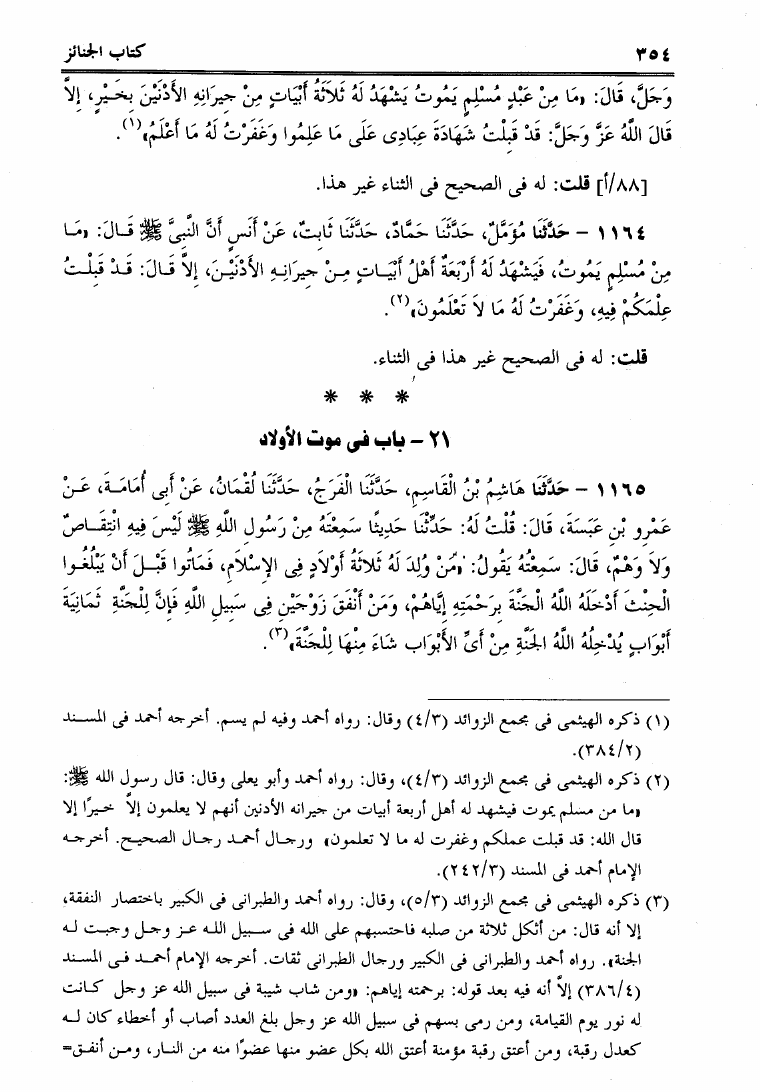 ٣٥٤ كتاب الجنائز
وَجَلَّ، قَالَ: «مَا مِنْ عَبْدٍ مُسْلِمٍ يَمُوتُ يَشْهَدُ لَهُ ثَلاَثَةُ أَبْيَاتٍ مِنْ جِيرَانِهِ الأَدْنَيْنَ بِخَـيْرٍ، إِلاَّ
قَالَ اللَّهُ عَزَّ وَجَلَّ: قَدْ قَبِلْتُ شَهَادَةَ عِبَادِى عَلَى مَا عَلِمُوا وَغَفَرْتُ لَهُ مَا أَعْلَمُ»(١).
[٨٨/أ] قلت: له فى الصحيح فى الثناء غير هذا.
١١٦٤ – حَدَّثَنَا مُؤَمَّلٌ، حَدَّثَنَا حَمَّادٌ، حَدَّثَنَا ثَابِتٌ، عَنْ أَنَسٍ أَنَّ النَّبِىَّ ﷺ قَـالَ: «مَـا
مِنْ مُسْلِمٍ يَمُوتُ، فَيَشْهَدُ لَهُ أَرْبَعَةُ أَهْلُ أَبْيَـاتٍ مِـنْ جِيرَانِـهِ الأَدْنَيْـنَ، إِلاَّ قَـالَ: قَـدْ قَبِلْـتُ
عِلْمَكُمْ فِيهِ، وَغَفَرْتُ لَهُ مَا لاَ تَعْلَمُونَ»(٢).
قلت: له فى الصحيح غير هذا فى الثناء.
* * *
٢١ – باب فى موت الأولاد
١١٦٥ – حَدَّثَنَا هَاشِمُ بْنُ الْقَاسِمِ، حَدَّثَنَا الْفَرَجُ، حَدَّثَنَا لُقْمَانُ، عَنْ أَبِى أُمَامَـةَ، عَـنْ
عَمْرِو بْنِ عَبَسَةَ، قَالَ: قُلْتُ لَهُ: حَدِّثْنَا حَدِيثًا سَمِعْتَهُ مِنْ رَسُولِ اللَّهِ ﷺ لَيْسَ فِيهِ انْتِقَـاصٌ
وَلاَ وَهْمٌ، قَالَ: سَمِعْتُهُ يَقُولُ: «مَنْ وُلِدَ لَهُ ثَلاَثَةُ أَوْلاَدٍ فِى الإِسْلاَمِ، فَمَاتُوا قَبْـلَ أَنْ يَبْلُغُـوا
الْحِنْثَ أَدْخَلَهُ اللَّهُ الْجَنَّةَ بِرَحْمَتِهِ إِيَّاهُمْ، وَمَنْ أَنْفَقَ زَوْجَيْنِ فِى سَبِيلِ اللَّهِ فَإِنَّ لِلْجَنَّةِ ثَمَانِيَةَ
أَبْوَابٍ يُدْخِلُهُ اللَّهُ الْجَنَّةَ مِنْ أَىِّ الأَبْوَابِ شَاءَ مِنْهَا لِلْجَنَّةَ»(٣).
(١) ذكره الهيثمى فى مجمع الزوائد (٤/٣) وقال: رواه أحمد وفيه لم يسم. أخرجه أحمد فى المسـند
(٣٨٤/٢).
(٢) ذكره الهيثمى فى مجمع الزوائد (٤/٣)، وقال: رواه أحمد وأبو يعلى وقال: قال رسول الله ﷺ:
«ما من مسلم يموت فيشهد له أهل أربعة أبيات من جيرانه الأدنين أنهم لا يعلمون إلاَّ خـيرًا إلا
قال الله: قد قبلت عملكم وغفرت له ما لا تعلمون» ورجـال أحمـد رجـال الصحيـح. أخرجـه
الإمام أحمد فى المسند (٢٤٢/٣).
(٣) ذكره الهيثمى فى مجمع الزوائد (٥/٣)، وقال: رواه أحمد والطبرانى فى الكبير باختصار النفقة،
إلا أنه قال: من أثكل ثلاثة من صلبه فاحتسبهم على الله فى سـبيل اللـه عـز وجـل وجبـت لـه
الجنة». رواه أحمد والطبرانى فى الكبير ورجال الطبرانى ثقات. أخرجه الإمام أحمـد فـى المسـند
(٣٨٦/٤) إلاَّ أنه فيه بعد قوله: برحمته إياهم: «ومن شاب شيبة فى سبيل الله عز وجل كـانت
له نور يوم القيامة، ومن رمى بسهم فى سبيل الله عز وجل بلغ العدد أصاب أو أخطاء كان لـه
كعدل رقبة، ومن أعتق رقبة مؤمنة أعتق الله بكل عضو منها عضوًا منه من النـار، ومـن أنفـق=